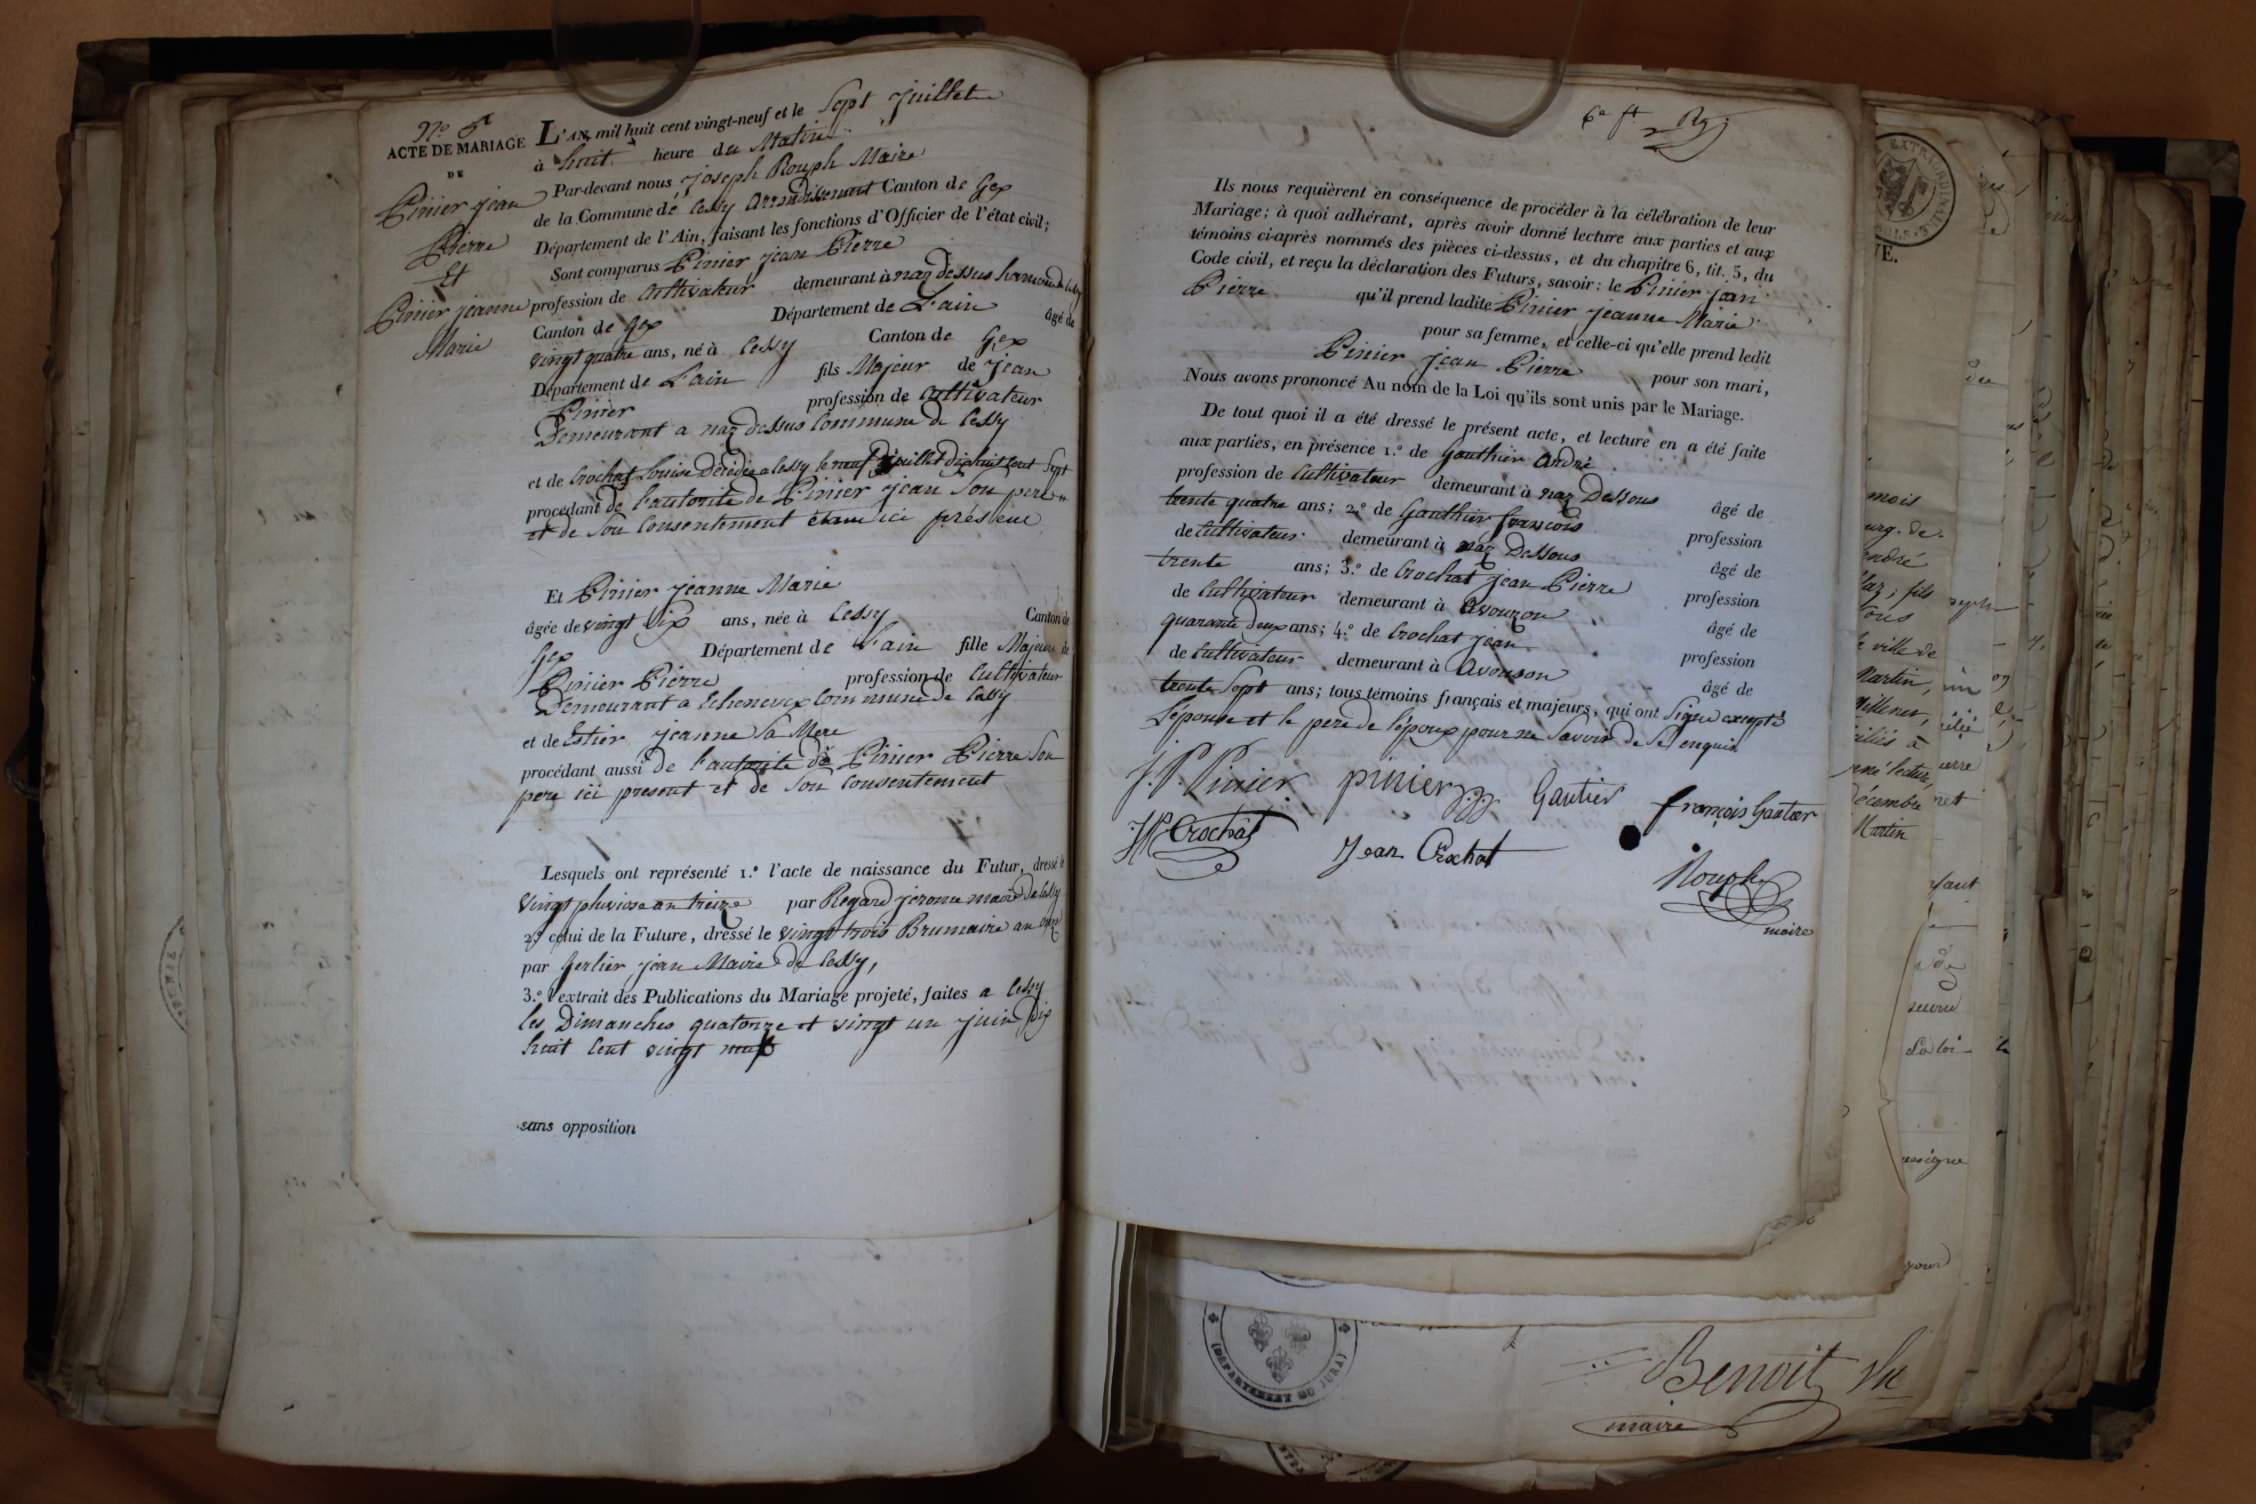 N.o 5e
ACTE DE MARIAGE
DE
Pinier jean
Pierre
Et
Pinier jeanne
Marie
L'AN mil huit cent vingt-neuf et le Sept juillet
à huit heure du Matin
Par-devant nous joseph Rouph Maire
de la Commune de Cessy Arrondissement Canton de Gex
Département de l'Ain, faisant les fonctions d'Officier de l'état civil;
Sont comparus Pinier jean Pierre
profession de Cultivateur demeurant à naz dessus hameau de Cessy
Canton de Gex Département de L'ain âgé de
vingt quatre ans, né à Cessy Canton de Gex
Département de L'ain fils Majeur de jean
Pinier profession de Cultivateur
Demeurant a naz dessus Commune de Cessy
et de Crochat Louise Décédée a Cessy le neuf juillet dix huit cent Sept
procédant de l'autorité de Pinier jean Son pere
et de Son Consentement étant ici présent
Et Pinier jeanne Marie
âgée de vingt Six ans, née à Cessy Canton de
Gex Département de L'ain fille Majeure de
Pinier Pierre profession de Cultivateur
Demeurant a Echenevex Commune de Cessy
et de Estier jeanne Sa Mere
procédant aussi de l'autorité de Pinier Pierre Son
pere ici present et de Son Consentement
Lesquels ont représenté 1.o l'acte de naissance du Futur, dressé le
vingt pluviose an treize par Regard jerome maire de Cessy
2.o celui de la Future, dressé le vingt trois Brumaire an onze
par Gerlier jean Maire de Cessy,
3.o l'extrait des Publications du Mariage projeté, faites a Cessy
les Dimanches quatorze et vingt un juin Dix
huit Cent vingt neuf
sans opposition
6e ft
Ils nous requièrent en conséquence de procéder à la célébration de leur
Mariage; à quoi adhérant, après avoir donné lecture aux parties et aux
témoins ci-après nommés des pièces ci-dessus, et du chapitre 6, tit. 5, du
Code civil, et reçu la déclaration des Futurs, savoir: le Pinier jean
Pierre qu'il prend ladite Pinier jeanne Marie
pour sa femme, et celle-ci qu'elle prend ledit
Pinier jean Pierre pour son mari,
Nous avons prononcé Au nom de la Loi qu'ils sont unis par le Mariage.
De tout quoi il a été dressé le présent acte, et lecture en a été faite
aux parties, en présence 1.o de Gauthier André
profession de Cultivateur demeurant à naz Dessous âgé de
trente quatre ans; 2.o de Gauthier francois profession
de Cultivateur demeurant à naz Dessous âgé de
trente ans; 3.o de Crochat jean Pierre profession
de Cultivateur demeurant à Avouzon âgé de
quarante deux ans; 4.o de Crochat jean profession
de Cultivateur demeurant à Avouson âgé de
trente Sept ans; tous témoins français et majeurs, qui ont Signé excepté
L'épouse et le pere de l'époux pour ne Savoir de ce enquis
J. P. Pinier pinier Gautier françois Gautier
JP Crochat Jean Crochat
Rouph
maire
EXTRAORDINAIRE
VE.
mois
Martin,
lecture,
décembre
Martin
La loi
(DÉPARTEMENT DU JURA)
Benoit
maire